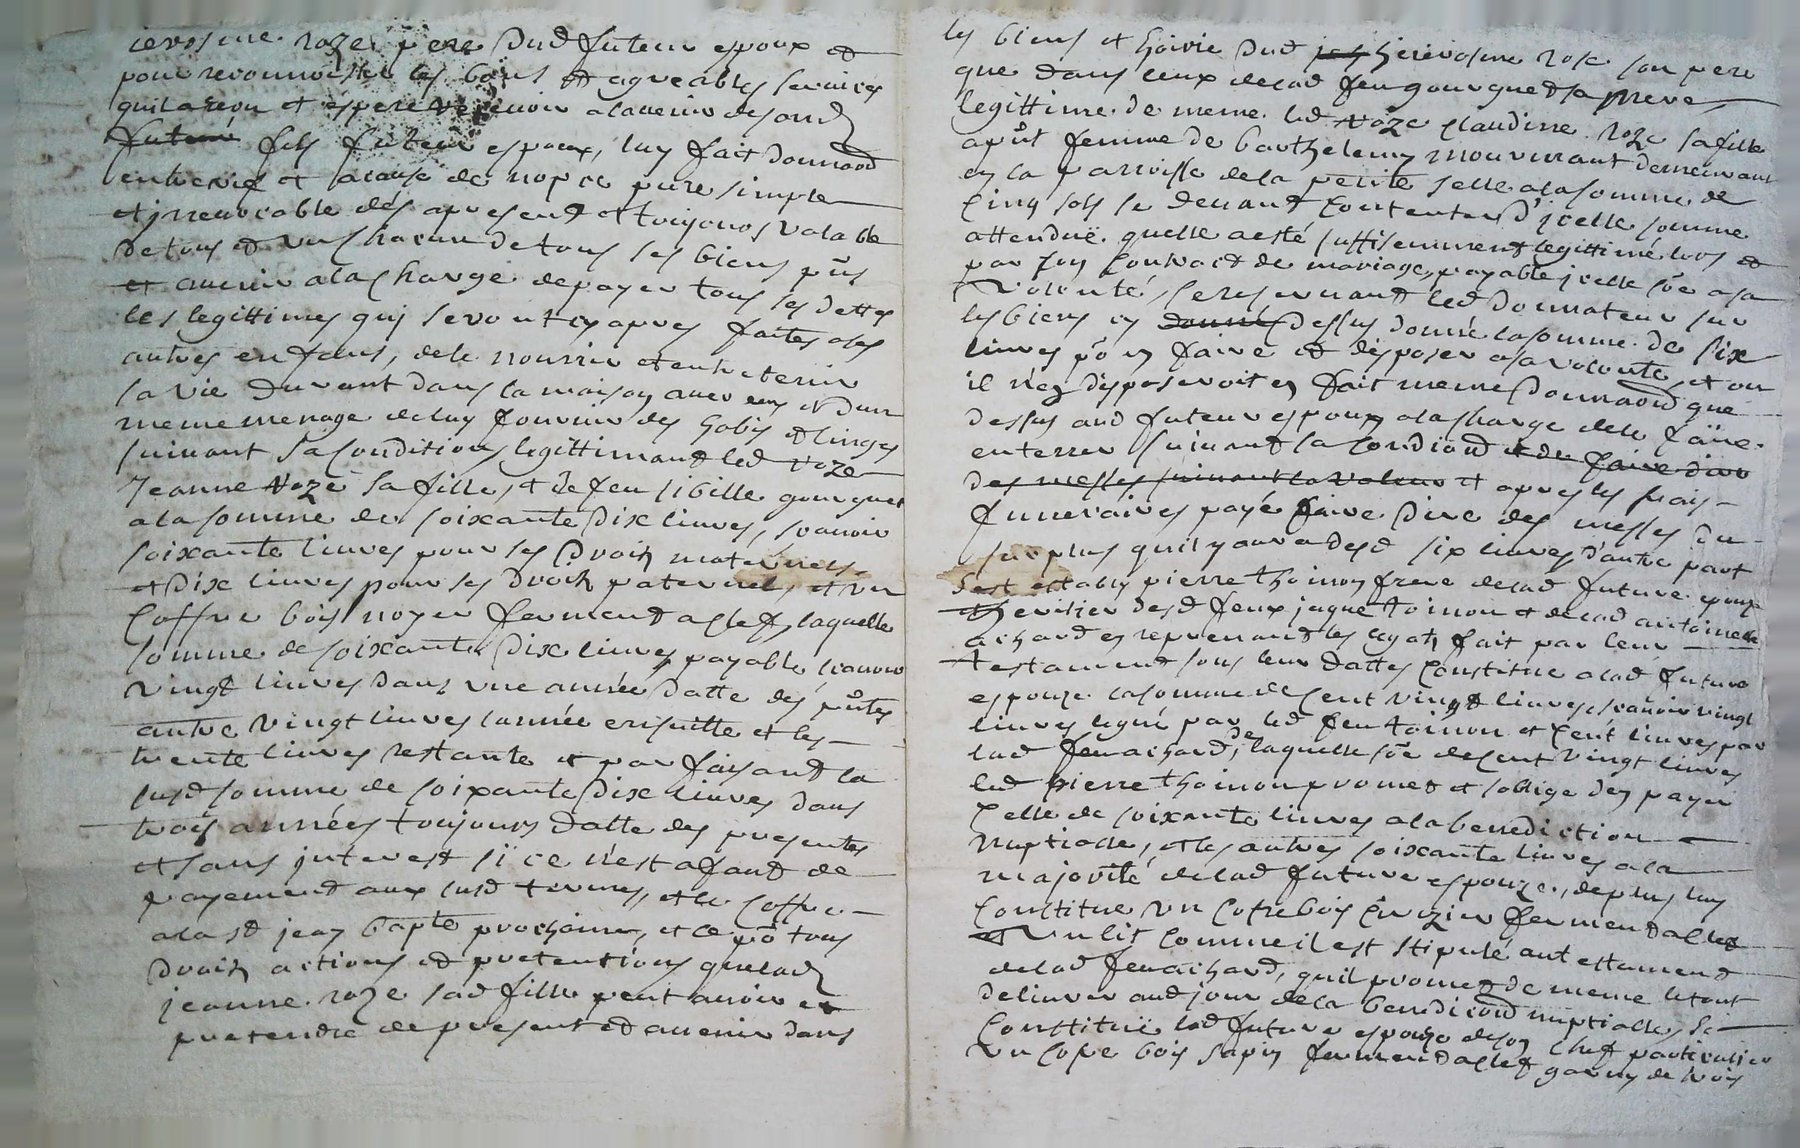 ierosme roze pere dud futeur espoux et
pour reconnoistre les bons et agreables services
quil a receu et espere recevoir a lauenir desond
futeur fils futeur espoux, luy fait donnaōn
entreuifz et a cause de nopce pure simple
et jrreuocable dés apresend et toujours valable
de tous et vn chacun de tous ses biens pn̄s
et auenir a la charge de payer tous ses dettes
les legittimes qui seront cy apres faites a ses
autres enfans, de le nourrir et entretenir
sa vie durant dans la maison auec eux et dun
meme menage de luy fournir des habis et linges
suiuant sa condition, legittimant led roze
Jeanne roze sa fille, et de feu sibille gourguet
a la somme de soixante dix liures, scauoir
soixante liures pour ses droits maternels
et dix liures pour ses droits paternel, et vn
coffre bois noyer fermend a clef, laquelle
somme de soixante dix liures payable scauoir
vingt liures dans vne année datte des pn̄tes
autre vingt liures lannée ensuitte et les
trente liures restante et parfaisand la
susd somme de soixante dix liures dans
trois années toujours datte des presentes
et sans jnterest si ce n'est a faud de
payemend aux susd termes, et le coffre
a la sd jean bapte prochaine, et ce po tous
droits actions et pretentions quelad
jeanne roze sad fille peut auoir et
pretendre de present et auenir dans
les biens et hoirie dud jes hierosme rose son pere
que dans ceux delad feu gourguet sa mere
legittime de meme led roze claudine roze sa fille
apn̄t femme de barthelemy mourirant demeurant
en la parroisse de la petite selle a la somme de
cinq sols se deuant contenter d'jcelle somme
attenduë quelle a esté suffisemment legittimé lors et
par son contract de mariage, payable jcelle sōe a sa
volonté, se reseruand led donnateur sur
les biens cy donné dessus donné la somme de six
liures po en faire et disposer a sa volonté, et ou
il n'en disposeroit en fait meme donnaōn que
dessus aud futeur espoux a la charge de le faire
enterrer suiuant sa condiōn et de faire dire
des messes suiuant la valeur et apres les frais
funeraires payé faire dire des messes du
surplus quil y aura desd six liures d'autre part
s'est estably pierre thoinon frere delad future espouze
et heritier desd feux jaque toinon et delad antoinette
achard en reprenant les legats fait par leur
testamend sous leur dattes constitue a lad future
espouze la somme de cent vingt liures, scauoir vingt
liures legué par led feu toinon et cent liures par
lad feu achard, de laquelle sōe de cent vingt liures
led pierre thoinon promet et soblige den payer
celle de soixante liures a la benediction
nuptialle, et les autres soixante liures a la
majorité delad future espouze, deplus luy
constitue vn cofre bois serizier fermend a clef
et vn lit comme il est stipulé aut estamend
delad feu achard, quil promet de meme le tout
deliurer aud jour de la benediōn nuptialle, se
constituë lad future espouze de son chef particulier
vn cofre bois sapin fermend a clef garny de trois